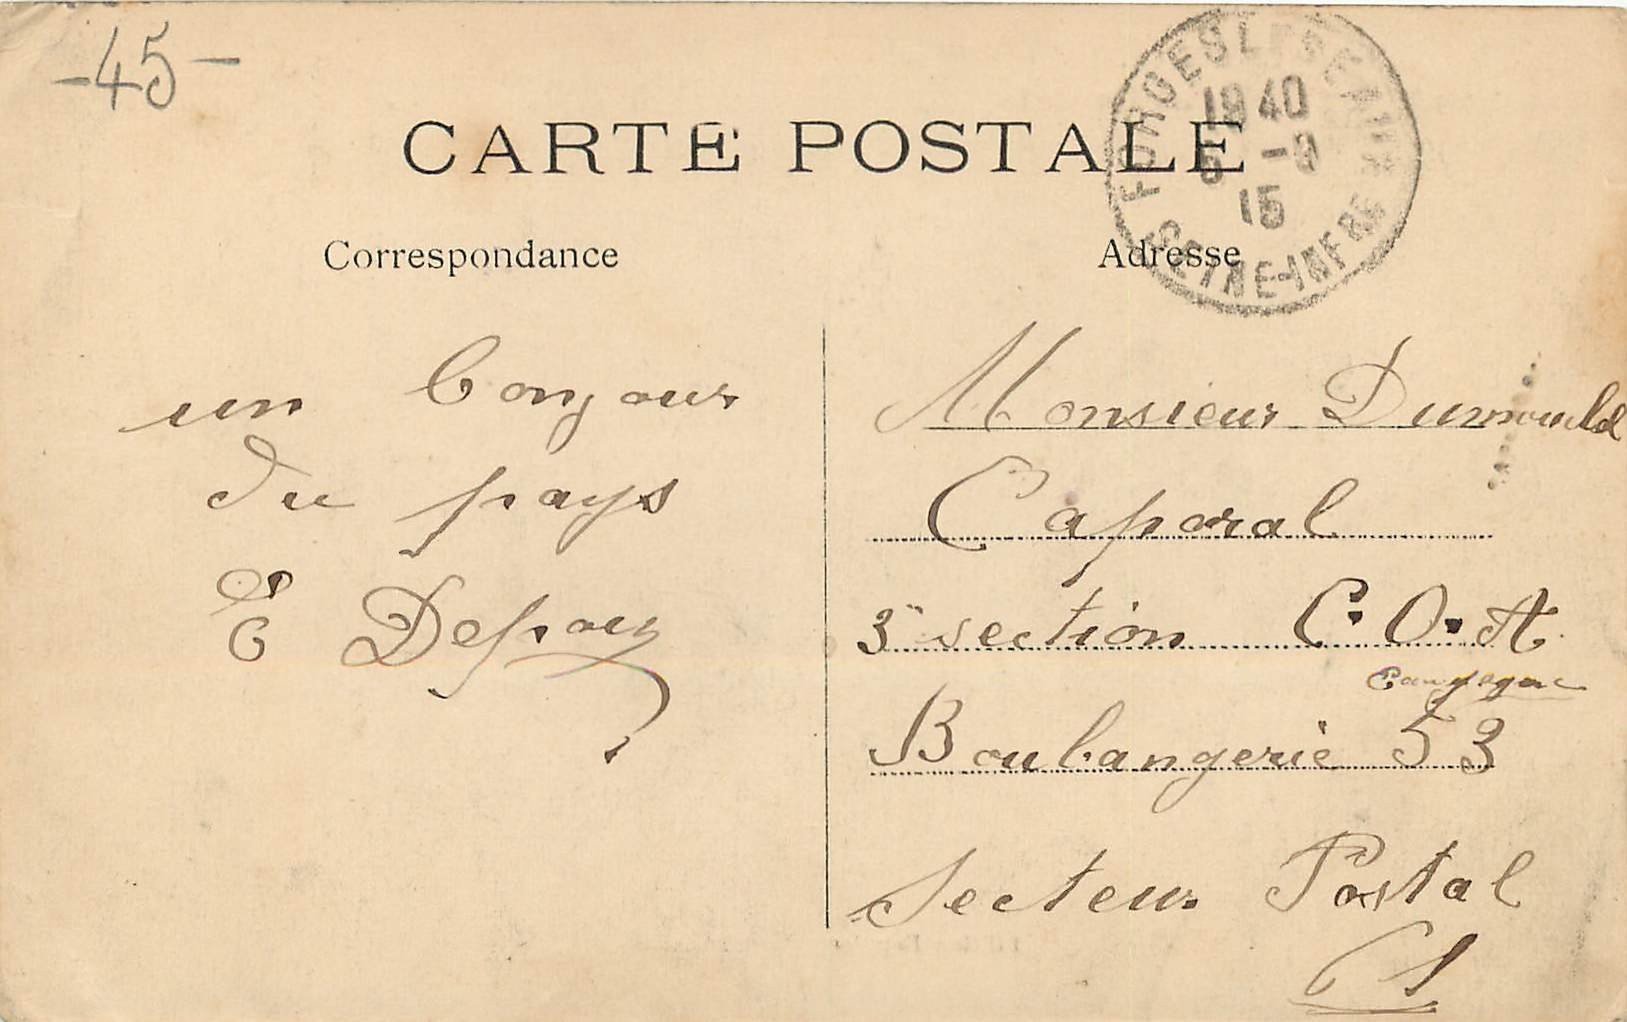 -45-
CARTE POSTALE
FORGES LES EAUX
19 40
5 -9
15
SEINE-INFRE
Correspondance
Adresse
un bonjour
du pays
E Depoix
Monsieur
Caporal
3e section C.O.A
Boulangerie 53
Secteur Postal